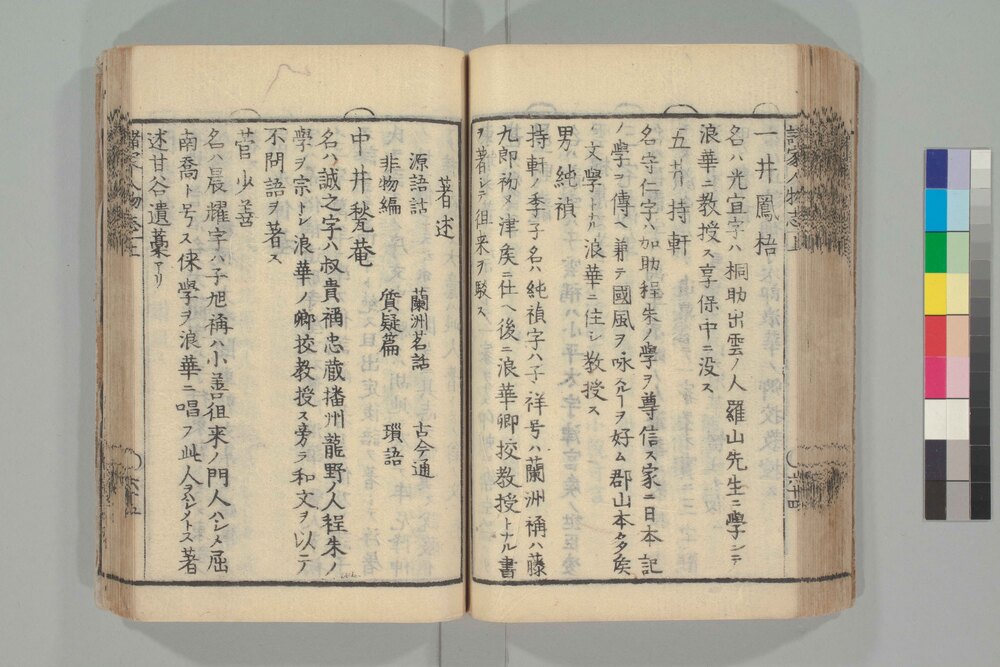 諸家人物志上
一井鳳梧
名ハ光宣字ハ桐助出雲ノ人羅山先生ニ學ンテ
浪華ニ教授ス享保中ニ没ス
五井持軒
名守仁字ハ加助程朱ノ學ヲ尊信ス家ニ日本記
ノ學ヲ傳ヘ兼テ國風ヲ咏スルヿヲ好ム郡山本多矦
ノ文學トナル浪華ニ住シ教授ス
男純禎
持軒ノ季子名ハ純禎字ハ子祥号ハ蘭洲稱ハ藤
九郎初メ津矦ニ仕ヘ後ニ浪華郷校教授トナル書
ヲ著シテ徂來ヲ駁ス
著述
源語詁 蘭洲茗話 古今通
非物編 質疑篇 瑣語
中井甃菴
名ハ誠之字ハ叔貴稱忠蔵播州龍野ノ人程朱ノ
學ヲ宗トシ浪華ノ郷校教授ス旁ラ和文ヲ以テ
不問語ヲ著ス
菅少善
名ハ晨耀字ハ子旭稱ハ小善徂來ノ門人ハシメ屈
南喬ト号ス徠學ヲ浪華ニ唱フ此人ヲハシメトス著
述甘谷遺藁アリ
諸家人物志上